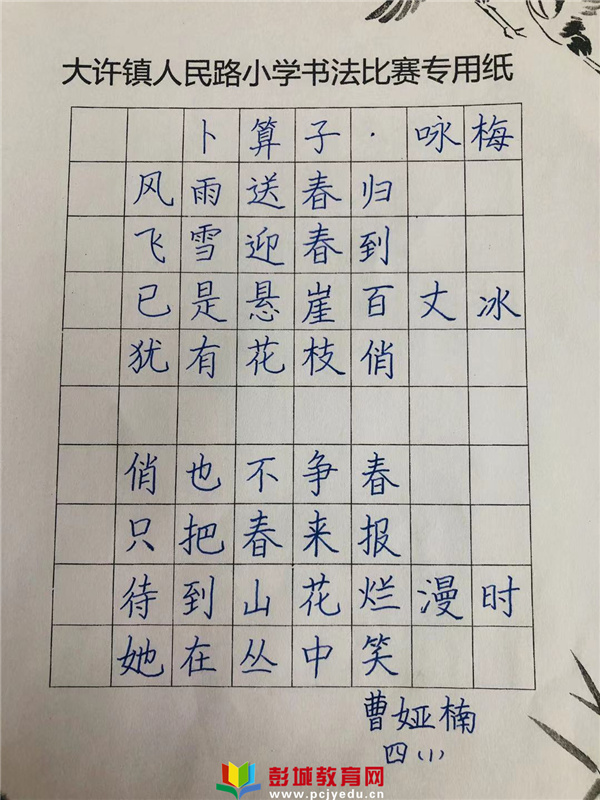 大许镇人民路小学书法比赛专用纸
卜算子·咏梅
风雨送春归
飞雪迎春到
已是悬崖百丈冰
犹有花枝俏
俏也不争春
只把春来报
待到山花烂漫时
她在丛中笑
曹娅楠
四(1)
彭城教育网
www.pcjyedu.cn